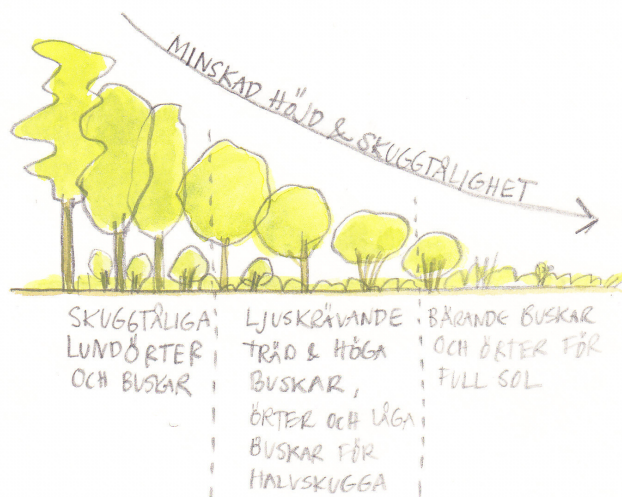 MINSKAD HÖJD & SKUGGTÅLIGHET
SKUGGTÅLIGA
LUNDÖRTER
OCH BUSKAR
LJUSKRÄVANDE
TRÄD & HÖGA
BUSKAR,
ÖRTER OCH LÅGA
BUSKAR FÖR
HALVSKUGGA
BÄRANDE BUSKAR
OCH ÖRTER FÖR
FULL SOL